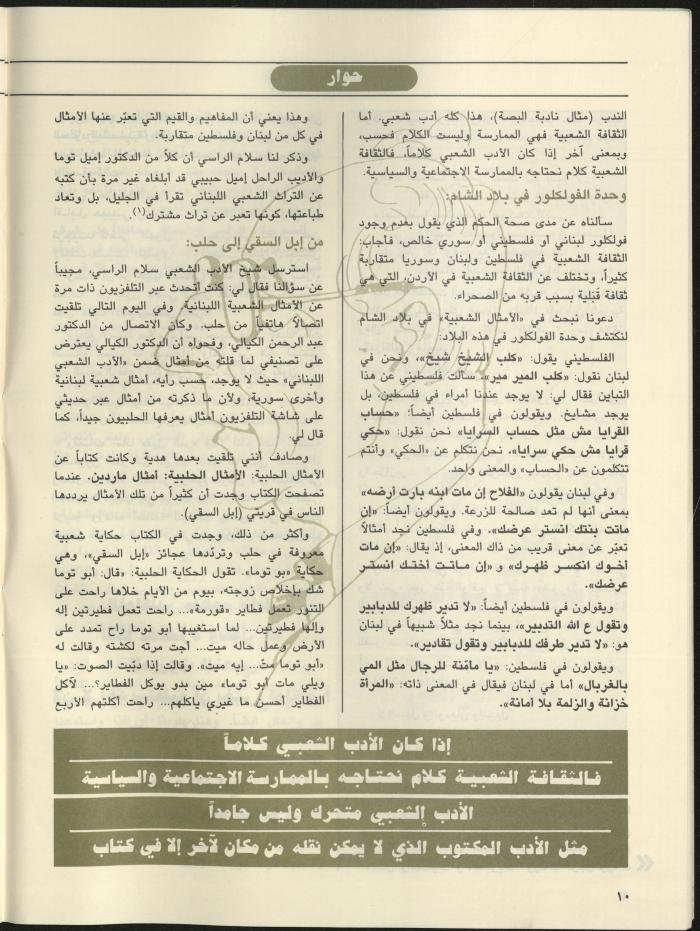 حوار
الندب (مثال نادبة البصة)، هذا كله أدب شعبي. أما
الثقافة الشعبية فهي الممارسة وليست الكلام فحسب،
وبمعنى آخر إذا كان الأدب الشعبي كلاماً، فالثقافة
الشعبية كلام نحتاجه بالممارسة الاجتماعية والسياسية.
وحدة الفولكلور في بلاد الشام:
سألناه عن مدى صحة الحكم الذي يقول بعدم وجود
فولكلور لبناني أو فلسطيني أو سوري خالص، فأجاب:
الثقافة الشعبية في فلسطين ولبنان وسوريا متقاربة
كثيراً، وتختلف عن الثقافة الشعبية في الأردن، التي هي
ثقافة قَبَلية بسبب قربه من الصحراء.
دعونا نبحث في «الأمثال الشعبية» في بلاد الشام
لنكتشف وحدة الفولكلور في هذه البلاد:
الفلسطيني يقول: «كلب الشيخ شيخ»، ونحن في
لبنان نقول: «كلب المير مير». سألت فلسطيني عن هذا
التباين فقال لي: لا يوجد عندنا أمراء في فلسطين، بل
يوجد مشايخ. ويقولون في فلسطين أيضاً: «حساب
القرايا مش مثل حساب السرايا» نحن نقول: «حكي
قرايا مش حكي سرايا». نحن نتكلم عن «الحكي» وأنتم
تتكلمون عن «الحساب» والمعنى واحد.
وفي لبنان يقولون «الفلاح إن مات ابنه بارت أرضه»
بمعنى أنها لم تعد صالحة للزرعة. ويقولون أيضاً: «إن
ماتت بنتك انستر عرضك». وفي فلسطين نجد أمثالاً
تعبّر عن معنى قريب من ذاك المعنى، إذ يقال: «إن مات
أخوك انكسر ظهرك» و «إن ماتت أختك انستر
عرضك».
ويقولون في فلسطين أيضاً: «لا تدير ظهرك للدبابير
وتقول ع الله التدبير»، بينما نجد مثلاً شبيهاً في لبنان
هو: «لا تدير طرفك للدبابير وتقول تقادير».
ويقولون في فلسطين: «يا مآمّنة للرجال مثل المي
بالغربال» أما في لبنان فيقال في المعنى ذاته: «المرأة
خزانة والزلمة بلا أمانة».
وهذا يعني أن المفاهيم والقيم التي تعبّر عنها الأمثال
في كل من لبنان وفلسطين متقاربة.
وذكر لنا سلام الراسي أن كلاً من الدكتور إميل توما
والأديب الراحل إميل حبيبي قد أبلغاه غير مرة بأن كتبه
عن التراث الشعبي اللبناني تقرأ في الجليل، بل وتعاد
طباعتها، كونها تعبر عن تراث مشترك(١).
من إبل السقي إلى حلب:
استرسل شيخ الأدب الشعبي سلام الراسي، مجيباً
عن سؤالنا فقال لي: كنت أتحدث عبر التلفزيون ذات مرة
عن الأمثال الشعبية اللبنانية. وفي اليوم التالي تلقيت
اتصالاً هاتفياً من حلب. وكان الاتصال من الدكتور
عبد الرحمن الكيالي، وفحواه أن الدكتور الكيالي يعترض
على تصنيفي لما قلته من أمثال ضمن «الأدب الشعبي
اللبناني» حيث لا يوجد، حسب رأيه، أمثال شعبية لبنانية
وأخرى سورية، ولأن ما ذكرته من أمثال عبر حديثي
على شاشة التلفزيون أمثال يعرفها الحلبيون جيداً، كما
قال لي.
وصادف أنني تلقيت بعدها هدية وكانت كتاباً عن
الأمثال الحلبية: الأمثال الحلبية: أمثال ماردين. عندما
تصفحت الكتاب وجدت أن كثيراً من تلك الأمثال يرددها
الناس في قريتي (إبل السقي).
وأكثر من ذلك، وجدت في الكتاب حكاية شعبية
معروفة في حلب وتردّدها عجائز «إبل السقي»، وهي
حكاية «بو توما». تقول الحكاية الحلبية: «قال: أبو توما
شك بإخلاص زوجته، بيوم من الأيام خلاها راحت على
التنور تعمل فطاير «قورمة»... راحت تعمل فطيرتين إله
وإلها فطيرتين... لما استغيبها أبو توما راح تمدد على
الأرض وعمل حاله ميت... أجت مرته لكشته وقالت له
«أبو توما متّ... إيه ميت». وقالت إذا دبّيت الصوت: «يا
ويلي مات أبو توما» مين بدو يوكل الفطاير؟... لآكل
الفطاير أحسن ما غيري ياكلهم... راحت أكلتهم الأربع
إذا كان الأدب الشعبي كلاماً
فالثقافة الشعبية كلام نحتاجه بالممارسة الاجتماعية والسياسية
الأدب الشعبي متحرك وليس جامداً
مثل الأدب المكتوب الذي لا يمكن نقله من مكان لآخر إلا في كتاب
١٠